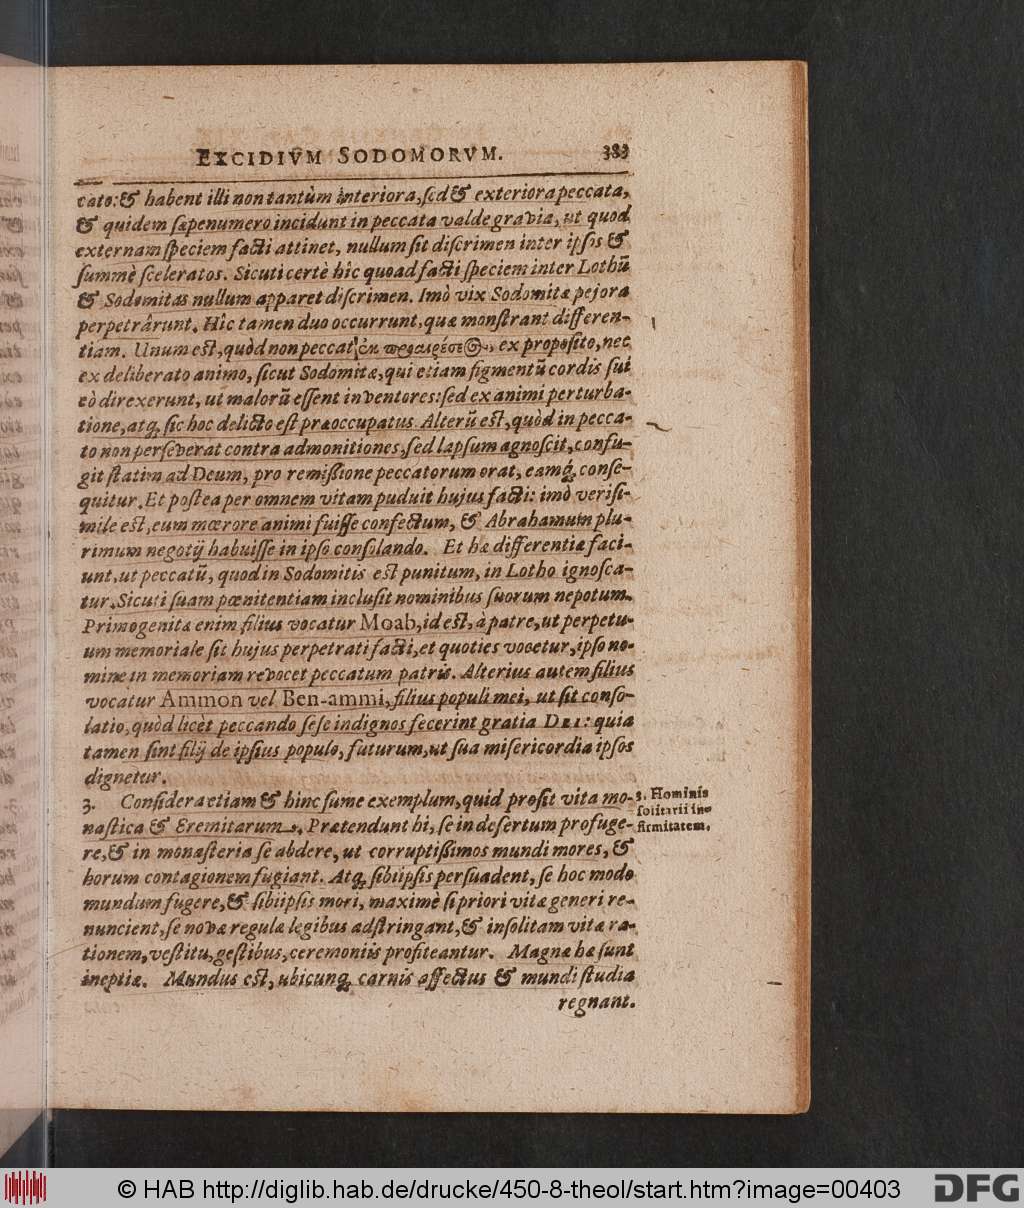 EXCIDIVM SODOMORVM. 383
cato: & habent illi non tantùm interiora, ſed & exteriora peccata,
& quidem ſæpenumero incidunt in peccata valde gravia, ut quod
externam ſpeciem facti attinet, nullum ſit diſcrimen inter ipſos &
ſummè ſceleratos. Sicuti certè hîc quoad facti ſpeciem inter Lothũ
& Sodomitas nullum apparet diſcrimen. Imò vix Sodomitæ pejora
perpetrârunt. Hîc tamen duo occurrunt, quæ monſtrant differen-
tiam. Unum eſt, quòd non peccat ἐκ προαιρέσεως, ex propoſito, nec
ex deliberato animo, ſicut Sodomitæ, qui etiam figmentũ cordis ſui
eò direxerunt, ut malorũ eſſent inventores: ſed ex animi perturba-
tione, atq́; ſic hoc delicto eſt præoccupatus. Alterũ eſt, quòd in pecca-
to non perſeverat contra admonitiones, ſed lapſum agnoſcit, confu-
git ſtatim ad Deum, pro remißione peccatorum orat, eamq́; conſe-
quitur. Et poſtea per omnem vitam puduit hujus facti: imò veriſi-
mile eſt, eum mœrore animi fuiſſe confectum, & Abrahamum plu-
rimum negotij habuiſſe in ipſo conſolando. Et hæ differentiæ faci-
unt, ut peccatũ, quod in Sodomitis eſt punitum, in Lotho ignoſca-
tur. Sicuti ſuam pœnitentiam incluſit nominibus ſuorum nepotum.
Primogenita enim filius vocatur Moab, id eſt, à patre, ut perpetu-
um memoriale ſit hujus perpetrati facti, et quoties vocetur, ipſo no-
mine in memoriam revocet peccatum patris. Alterius autem filius
vocatur Ammon vel Ben-ammi, filius populi mei, ut ſit conſo-
latio, quòd licèt peccando ſeſe indignos fecerint gratia DEI: quia
tamen ſint filij de ipſius populo, futurum, ut ſua miſericordia ipſos
dignetur.
3. Conſidera etiam & hinc ſume exemplum, quid proſit vita mo-
naſtica & Eremitarum. Prætendunt hi, ſe in deſertum profuge-
re, & in monaſteria ſe abdere, ut corruptißimos mundi mores, &
horum contagionem fugiant. Atq́; ſibiipſis perſuadent, ſe hoc modo
mundum fugere, & ſibiipſis mori, maximè ſi priori vitæ generi re-
nuncient, ſe novæ regulæ legibus adſtringant, & inſolitam vitæ ra-
tionem, veſtitu, geſtibus, ceremoniis profiteantur. Magnæ hæ ſunt
ineptiæ. Mundus eſt, ubicunq́; carnis affectus & mundi ſtudia
regnant.
3. Hominis
ſolitarii in-
firmitatem.
© HAB http://diglib.hab.de/drucke/450-8-theol/start.htm?image=00403
DFG